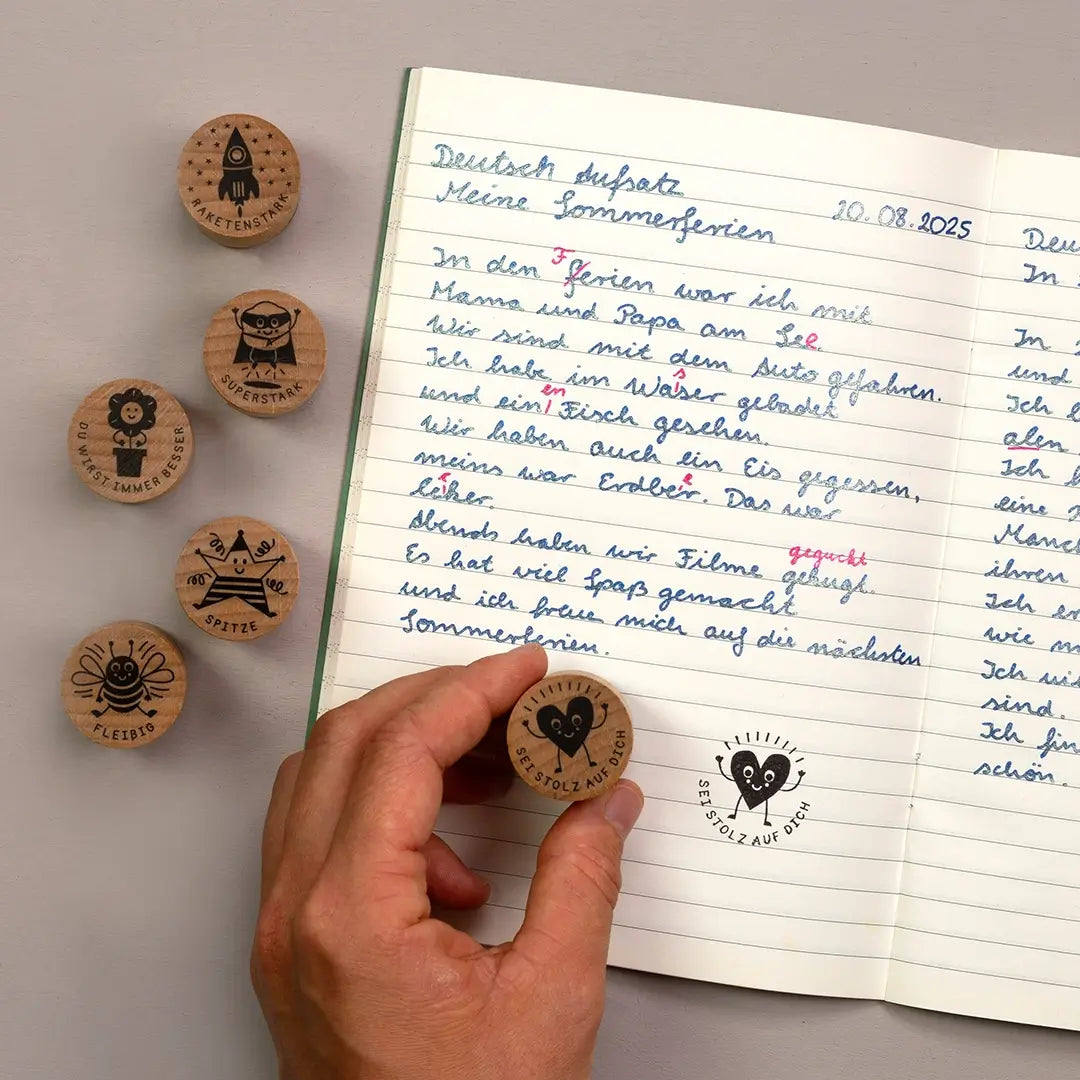 RAKETENSTARK
SUPERSTARK
DU WIRST IMMER BESSER
SPITZE
FLEIßIG
SEI STOLZ AUF DICH
Deutsch Aufsatz
Meine Sommerferien
20.08.2025
F
In den ferien war ich mit
Mama und Papa am See.
Wir sind mit dem Auto gefahren.
s
Ich habe im Waser gebadet
en
und ein Fisch gesehen.
Wir haben auch ein Eis gegessen,
e
meins war Erdber. Das war
c
leker.
Abends haben wir Filme
geguckt
gekugt.
Es hat viel Spaß gemacht
und ich freue mich auf die nächsten
Sommerferien.
SEI STOLZ AUF DICH
Deu
In
In
und
Ich
alen
Ich
eine
Manch
ihren
Ich er
wie m
Ich wi
sind.
Ich fin
schön.